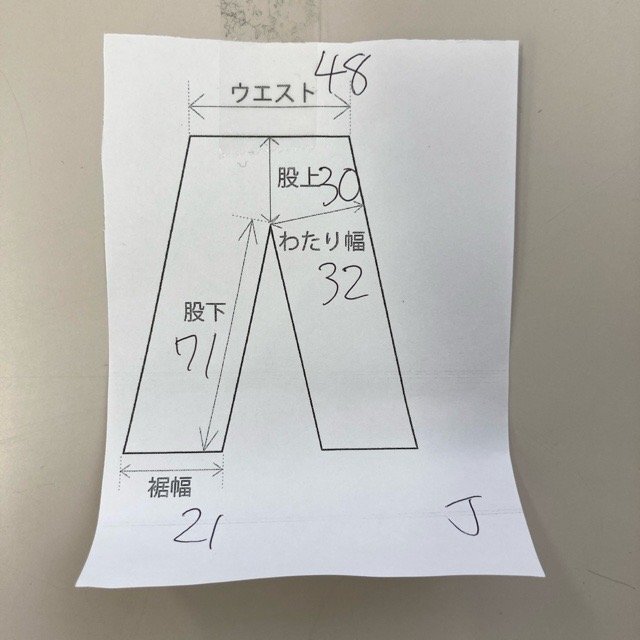 ウエスト 48
股上 30
わたり幅
32
股下
71
裾幅
21
J